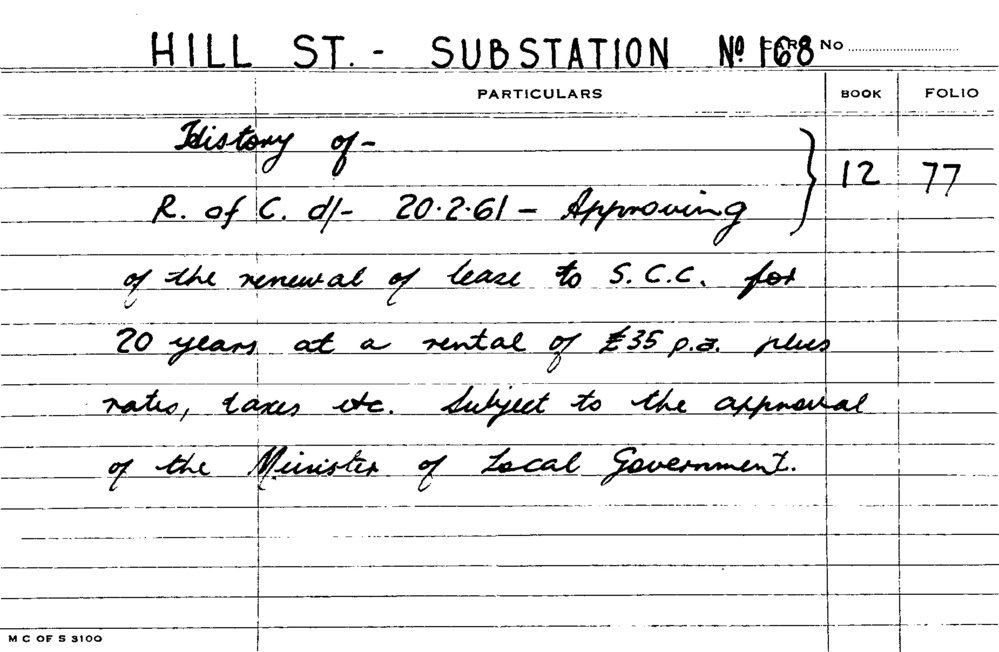 HILL ST. - SUBSTATION Nº 168 CARD No
PARTICULARS BOOK FOLIO
History of -
12 77
R. of C. d/- 20.2.61 - Approving
of the renewal of lease to S.C.C. for
20 years at a rental of £35 p.a. plus
rates, taxes etc. Subject to the approval
of the Minister of Local Government.
M C OF S 3100